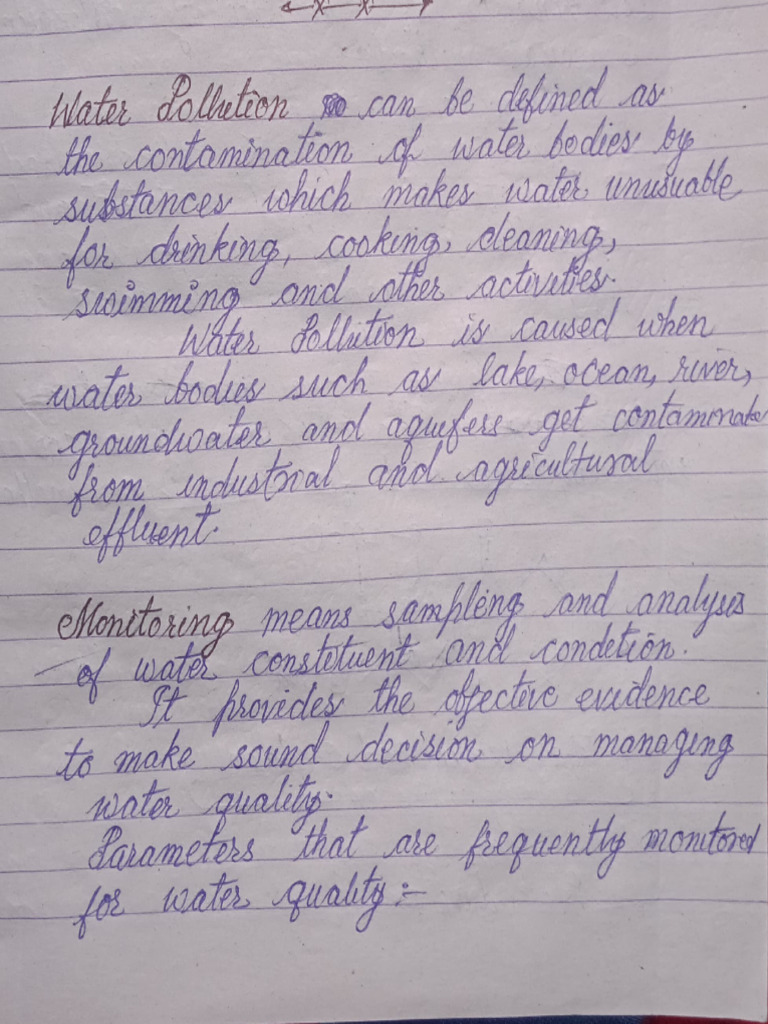 Water Pollution can be defined as
the contamination of water bodies by
substances which makes water unusuable
for drinking, cooking, cleaning,
swimming and other activities.
Water Pollution is caused when
water bodies such as lake, ocean, river,
groundwater and aquefers get contaminate
from industrial and agricultural
effluent.
Monitoring means sampling and analysis
of water constetuent and condetion.
It provides the objective evidence
to make sound decision on managing
water quality.
Parameters that are frequently monitored
for water quality :-